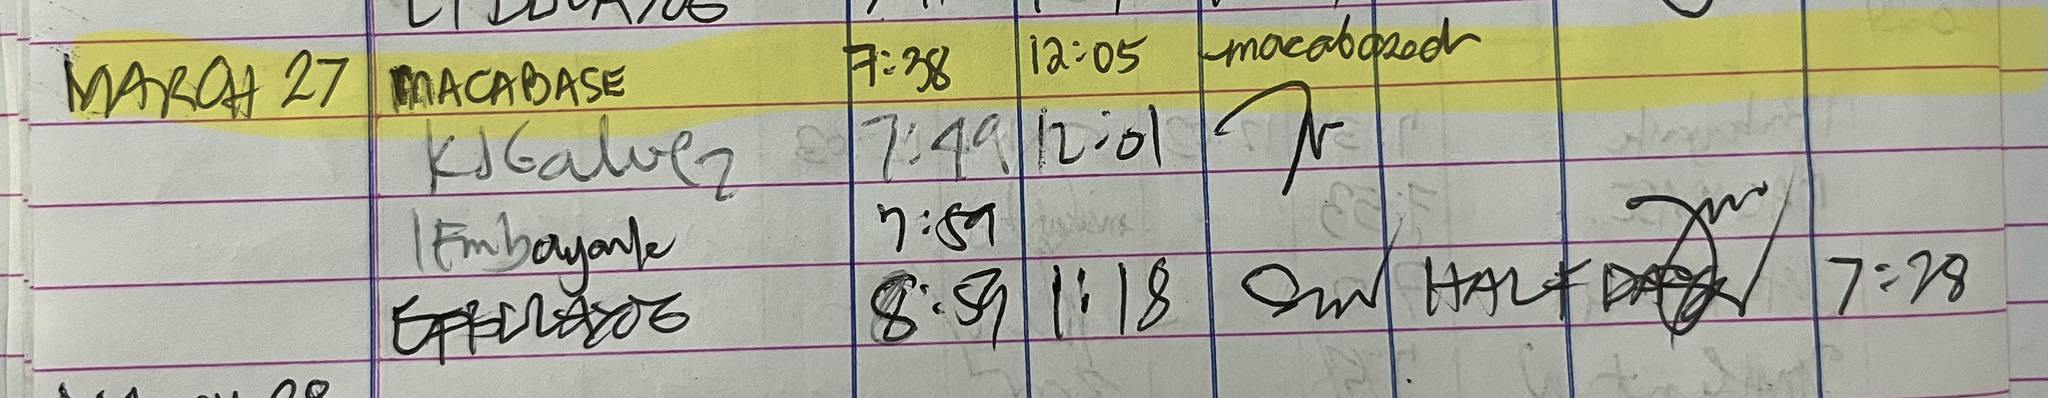 MARCH 27 MACABASE 7:38 12:05 macabased
KJGalvez 7:49 12:01
IEmbayank 7:59
8:59 1:18 HALF DAY 7:28